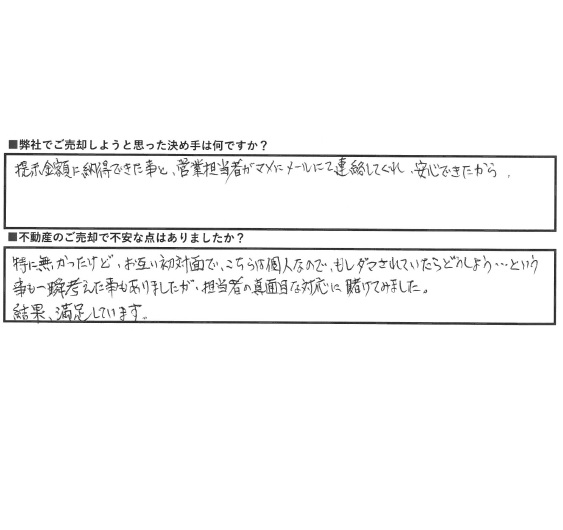 ■弊社でご売却しようと思った決め手は何ですか？
提示金額に納得できた事と、営業担当者がマメにメールにて連絡してくれ、安心できたから。
■不動産のご売却で不安な点はありましたか？
特に無かったけど、お互い初対面で、こちらは個人なので、もしダマされていたらどうしよう…という
事も一瞬考えた事もありましたが、担当者の真面目な対応に賭けてみました。
結果、満足しています。